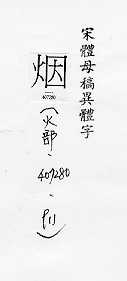 宋體母稿異體字
烟
407280
(火部、407280、P.11)